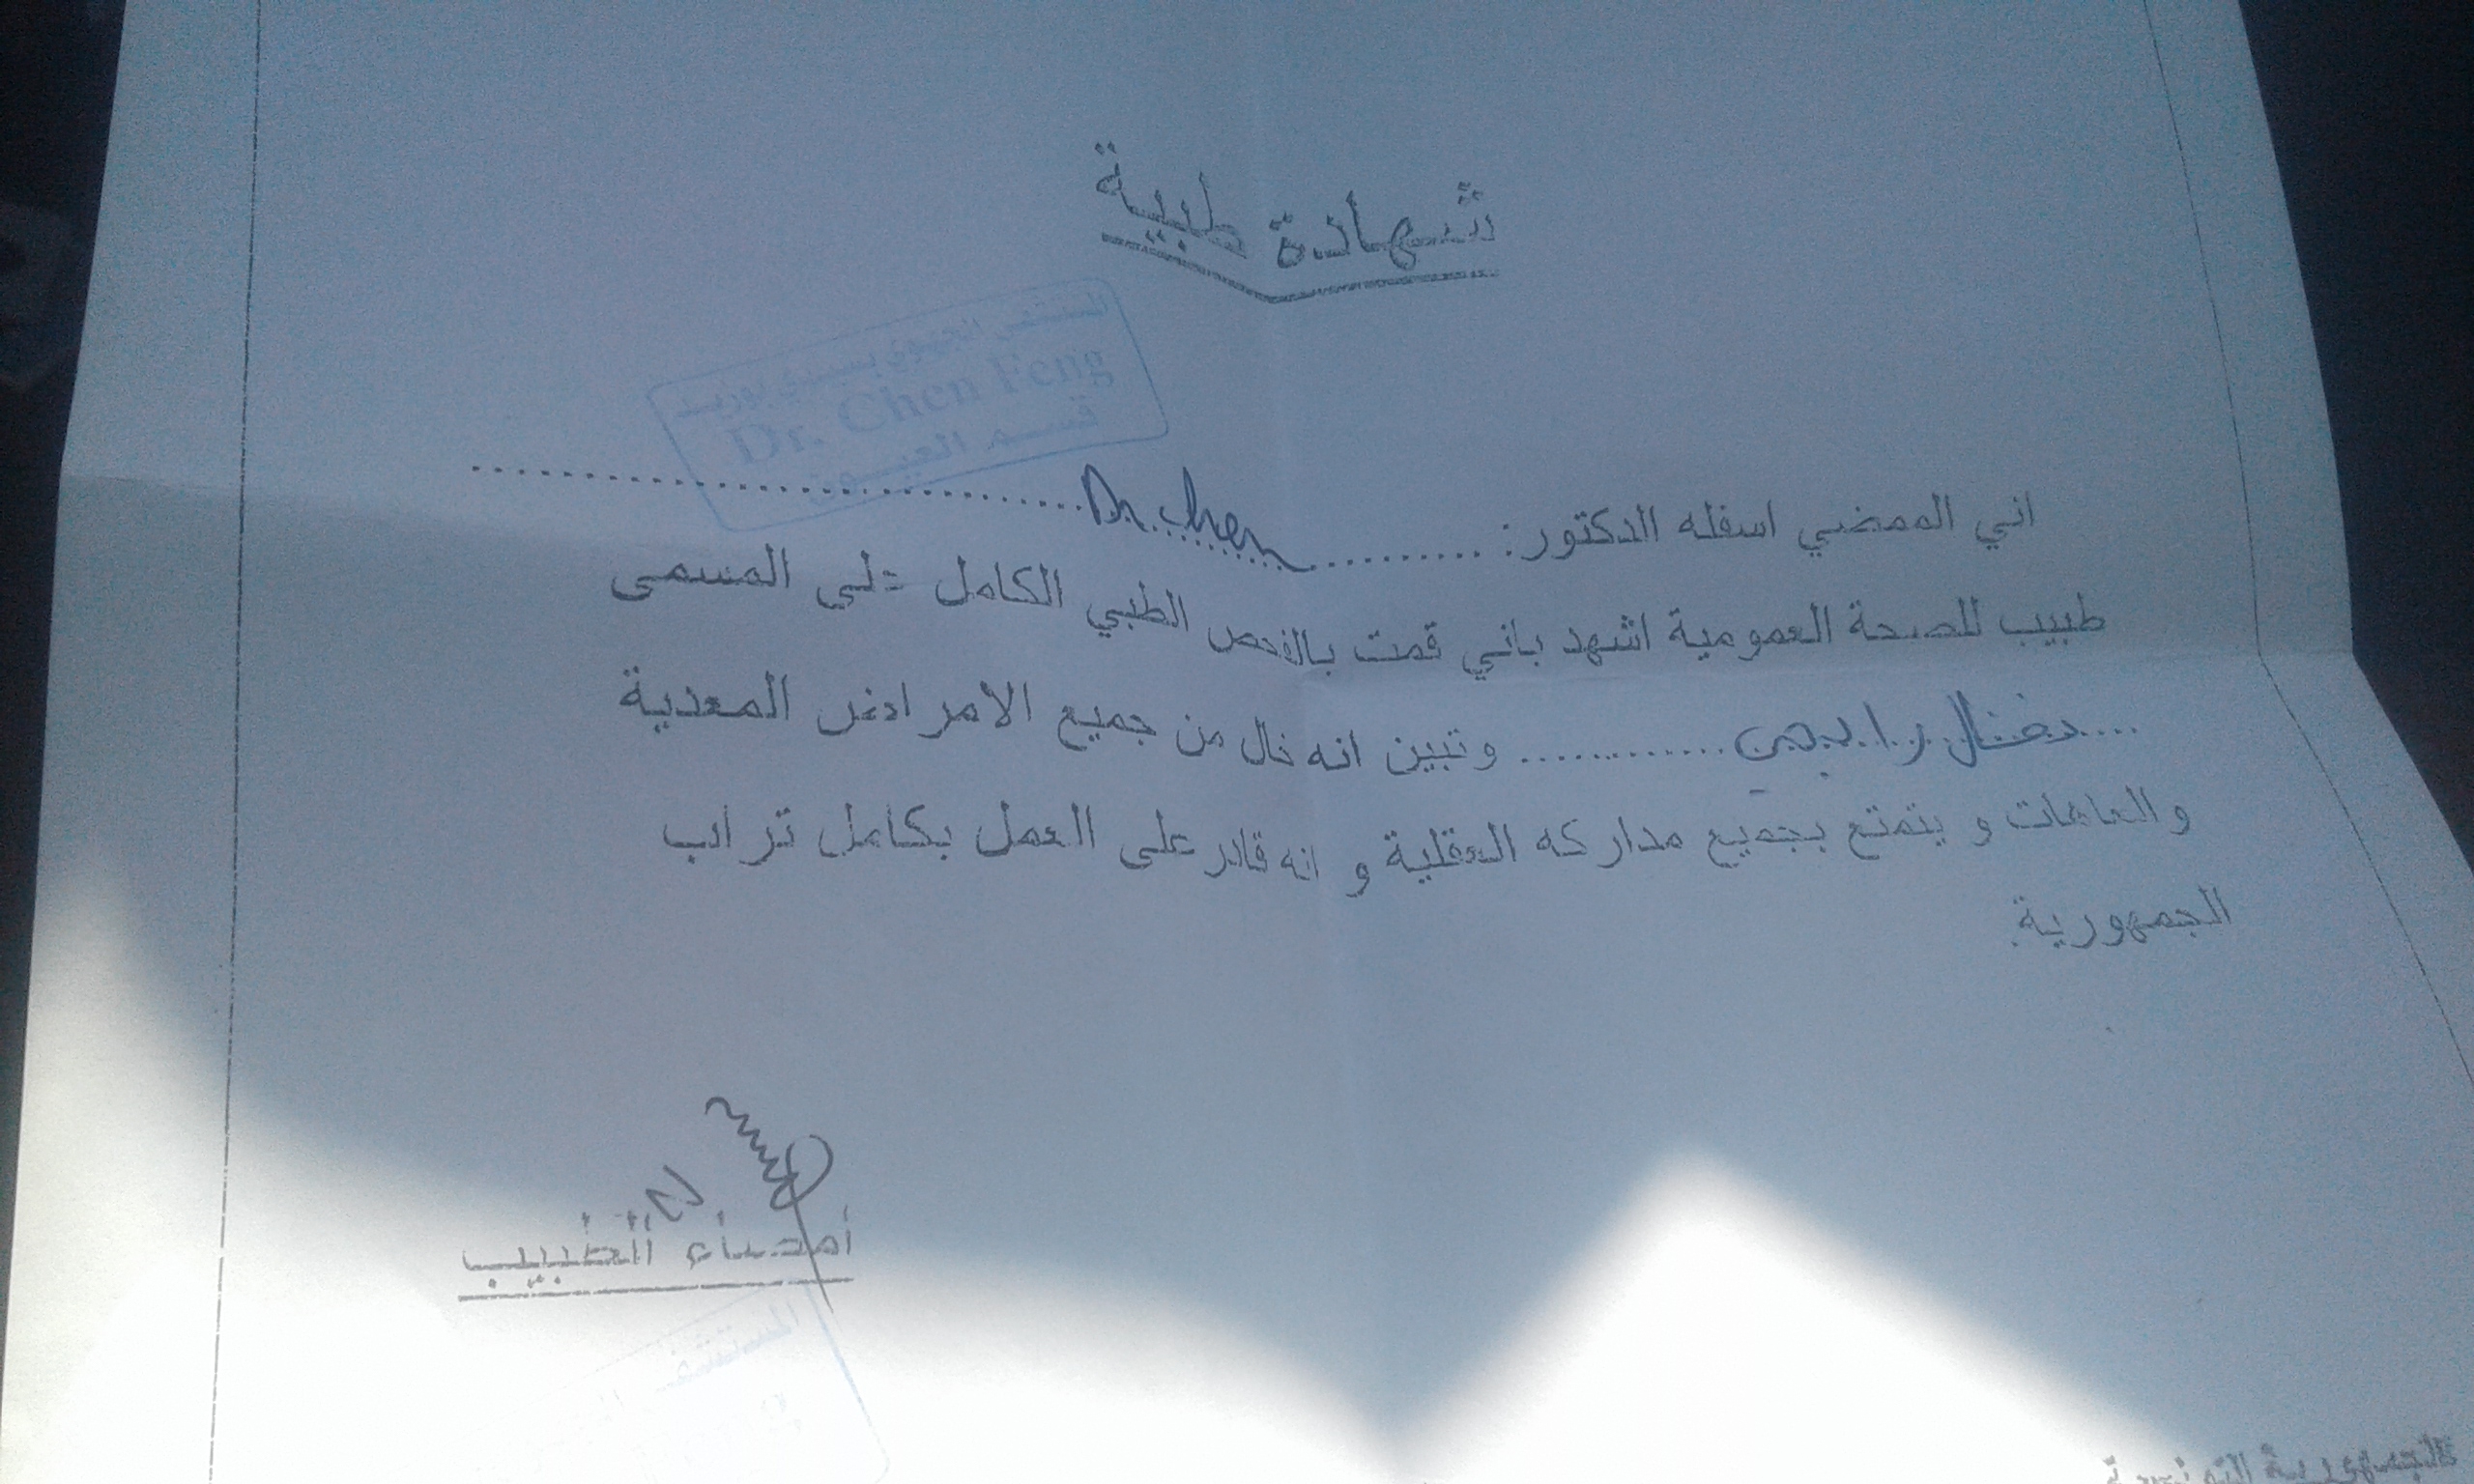 شهادة طبية
المستشفى الجهوي بسيدي بوزيد
Dr. Chen Feng
قسم العيون
اني الممضي اسفله الدكتور: ........ Dr. Chen ........
طبيب للصحة العمومية اشهد باني قمت بالفحص الطبي الكامل على المسمى
.... نضال رابحي ............ وتبين انه خال من جميع الامراض المعدية
والعاهات و يتمتع بجميع مداركه العقلية و انه قادر على العمل بكامل تراب
الجمهورية.
أمضاء الطبيب
المستشفى
الجمهورية التونسية